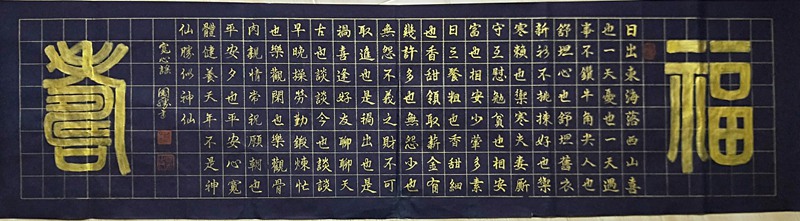 福
日出東海落西山喜
也一天憂也一天遇
事不鑽牛角尖人也
舒坦心也舒坦舊衣
新衫不挑揀好也禦
寒賴也禦寒夫妻廝
守互慰勉貧也相安
富也相安少葷多素
日三餐粗也香甜細
也香甜領取薪金有
幾許多也無怨少也
無怨不義之財不可
取進也是禍出也是
禍喜逢好友聊聊天
古也談談今也談談
早晚操勞勤鍛煉忙
也樂觀閑也樂觀骨
内親情常祝願朝也
平安夕也平安心寬
體健養天年不是神
仙勝似神仙
寬心謠
壽